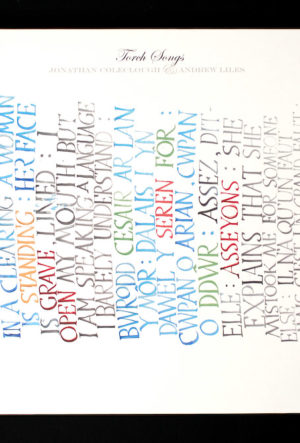 Torch Songs
JONATHAN COLECLOUGH & ANDREW LILES
IN A CLEARING A WOMAN
IS STANDING : HER FACE
IS GRAVE, LINED : I
OPEN MY MOUTH BUT
I AM SPEAKING A LANGUAGE
I BARELY UNDERSTAND :
BWRODD CESAIR AR LAN
Y MOR : DALAIS I YN
DAWEL Y SEREN FOR :
CWPAN O ARIAN, CWPAN
O DDWR : ASSEZ, DIT-
ELLE : ASSEYONS : SHE
EXPLAINS THAT SHE
MISTOOK ME FOR SOMEONE
ELSE : IL N'A QU'UN FAUT